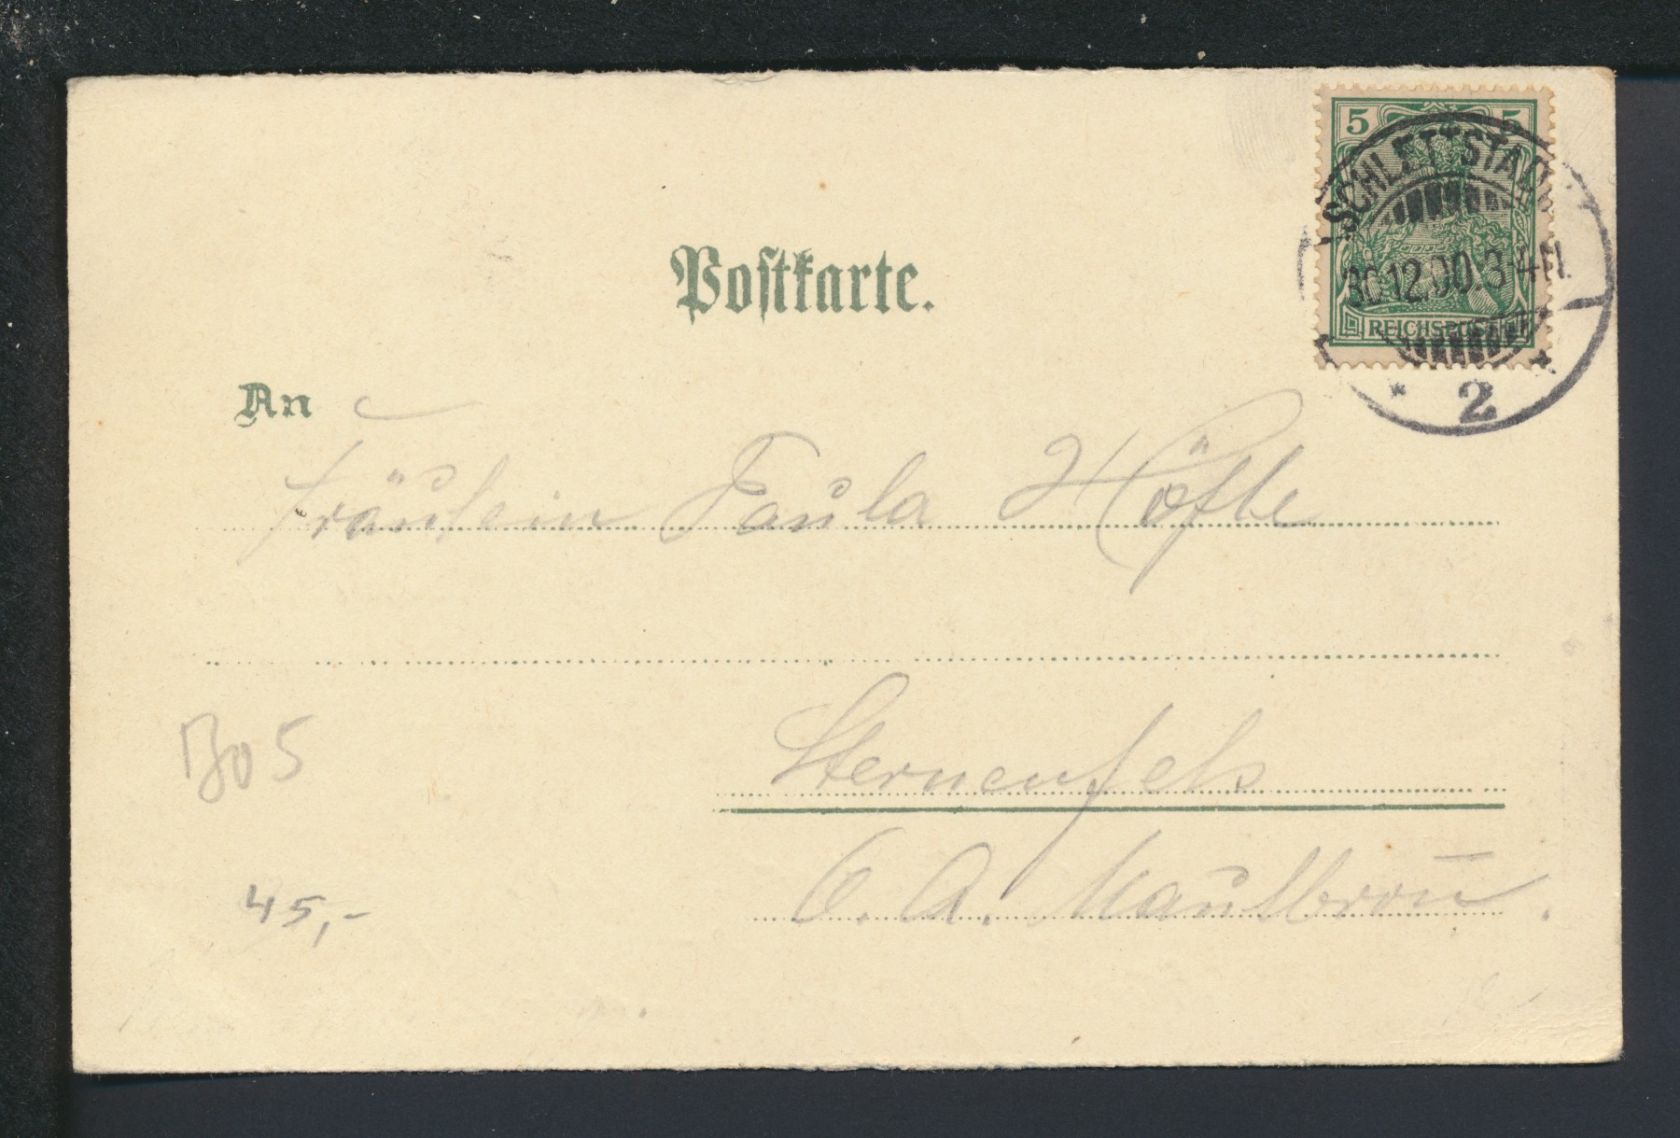 5 5
SCHLETTSTADT
30.12.00.3-4N.
REICHSPOST
* 2 *
Postkarte.
An
Fräulein Paula Höfle
Sternenfels
O. A. Maulbron̄.
45,-